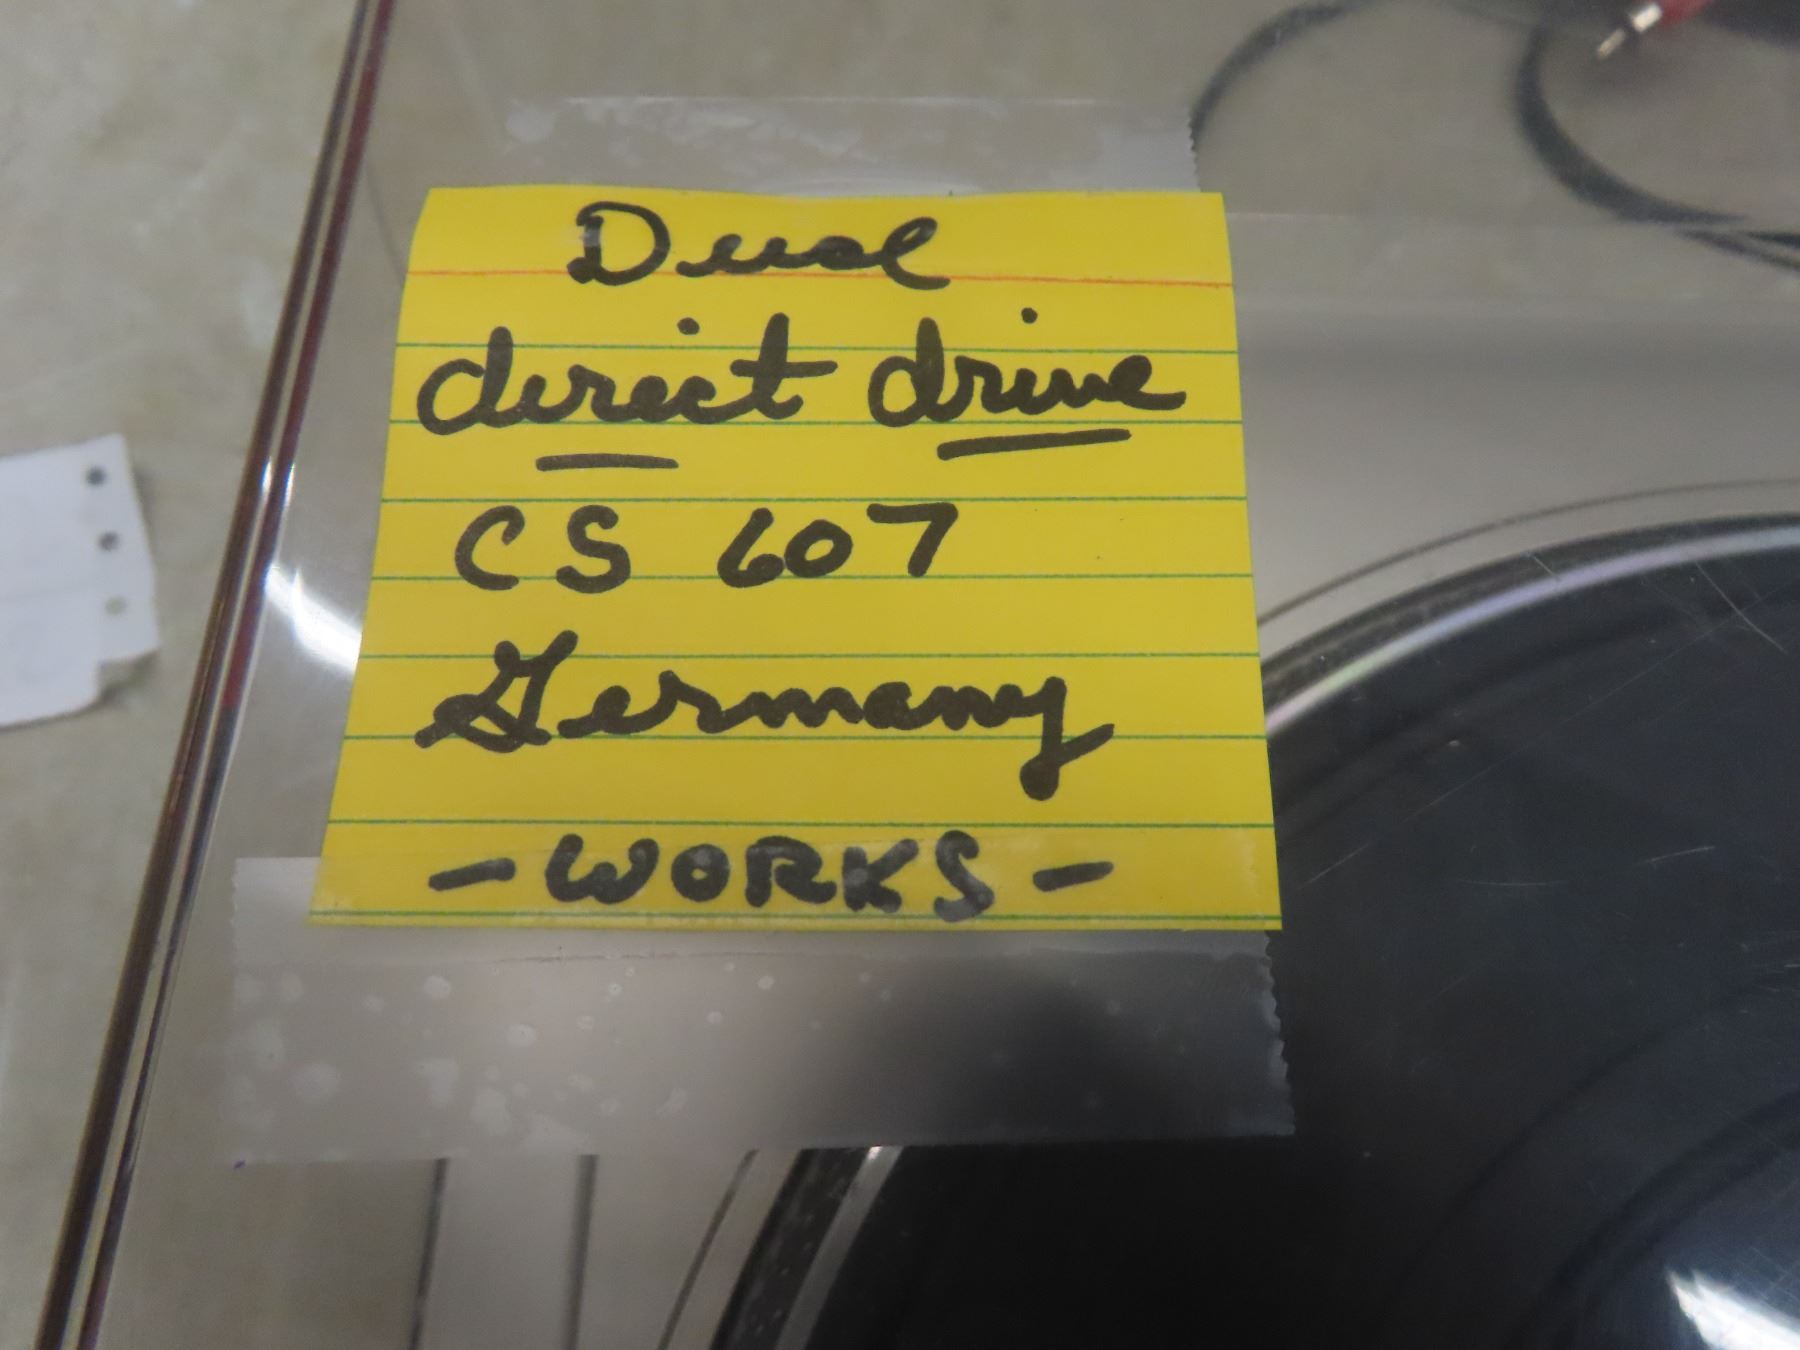 Dual
direct drive
CS 607
Germany
- WORKS -